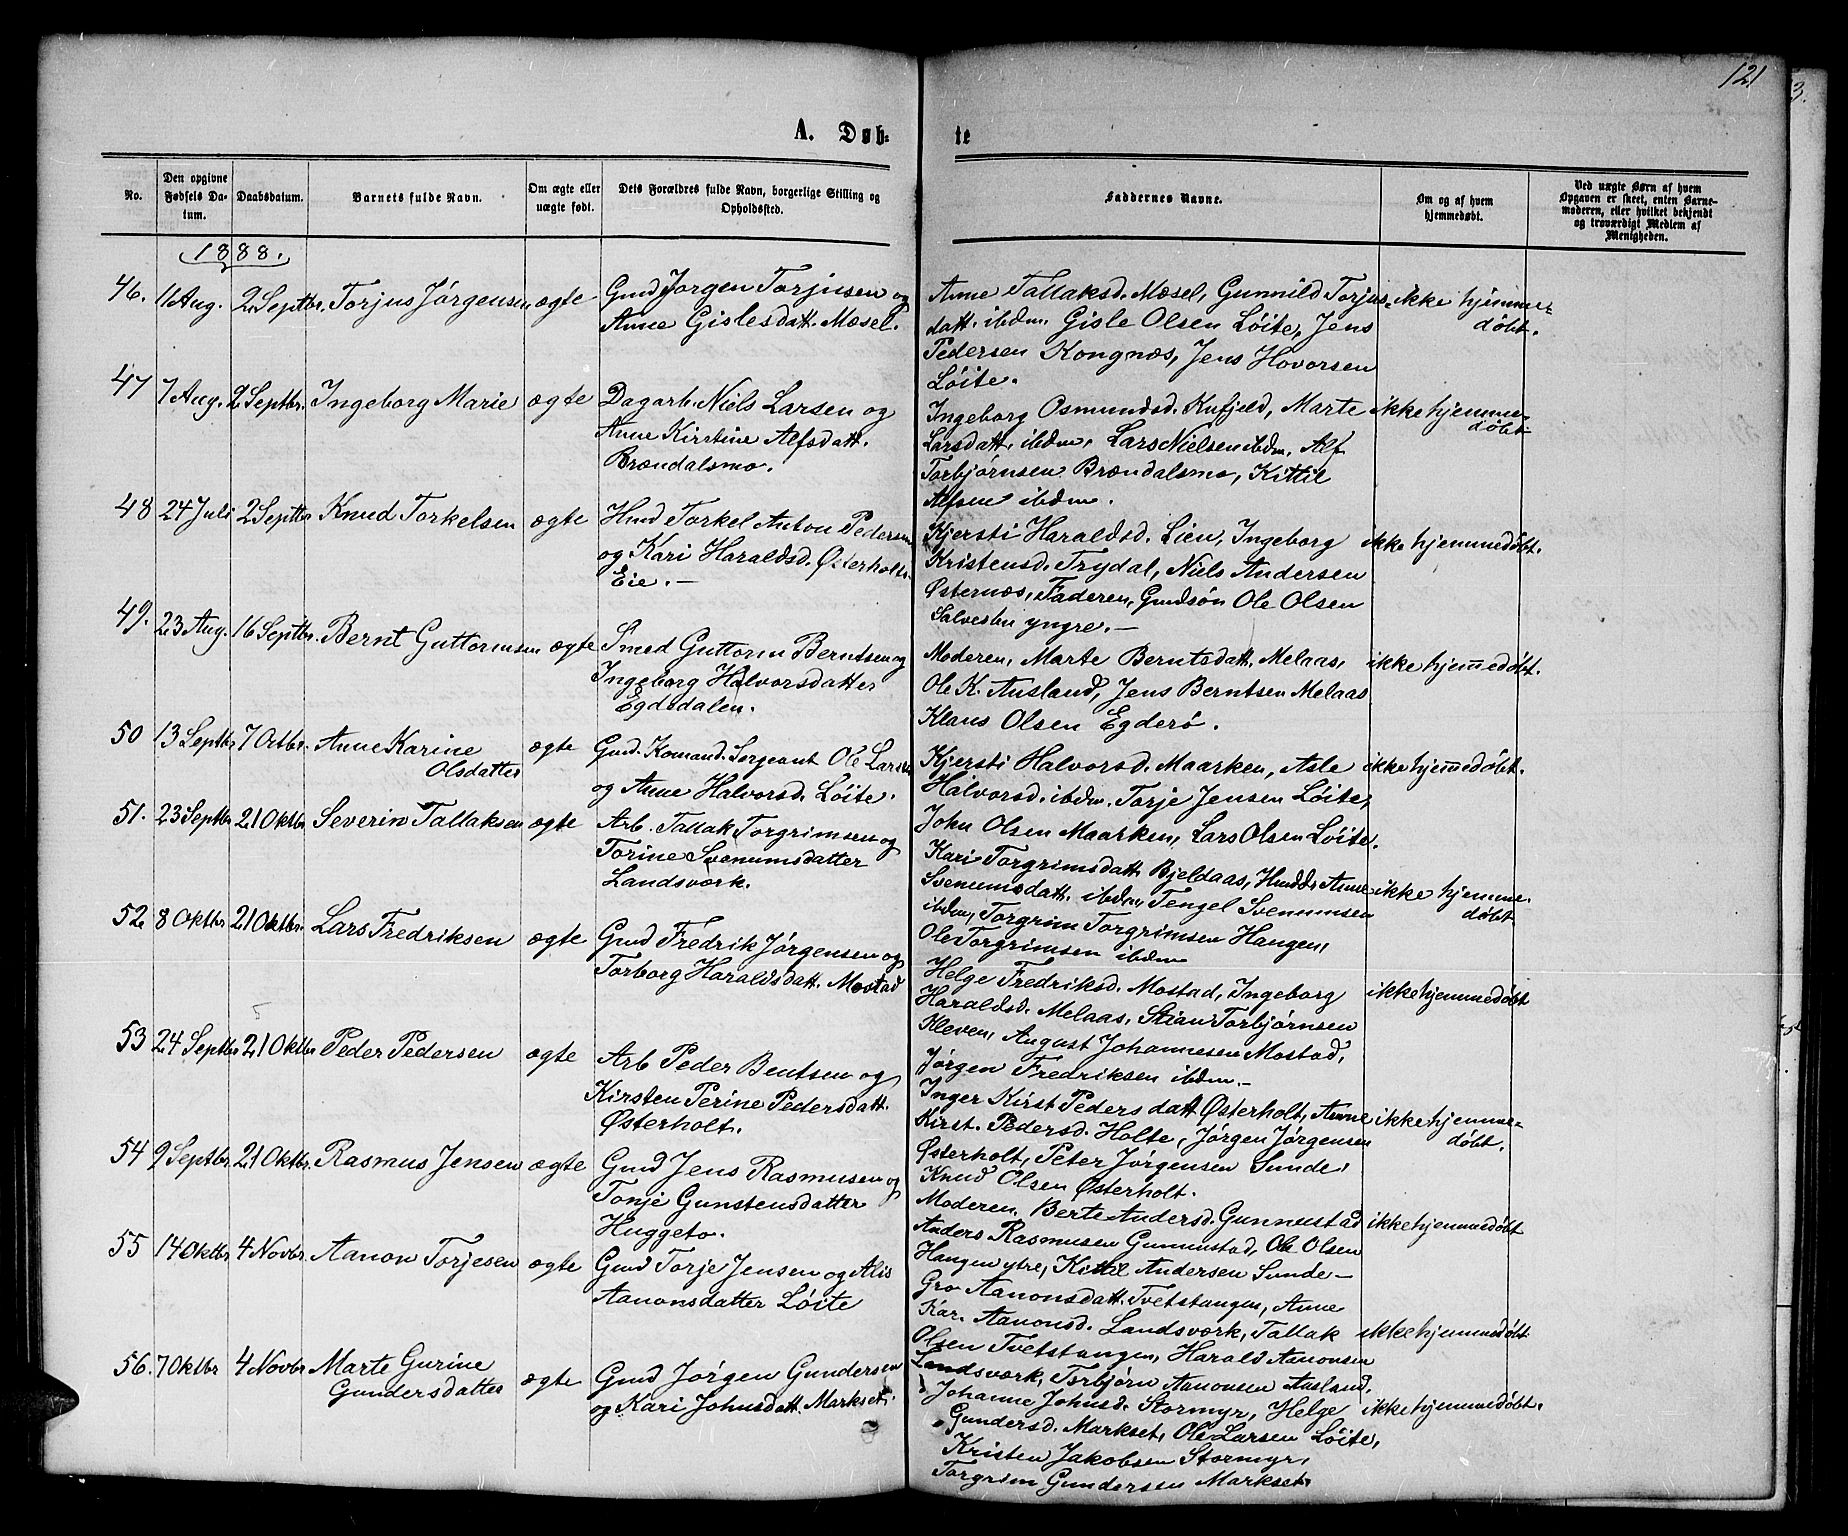 121
3.
A. Døb-
te
No.
Den opgivne Fødsels Da-tum.
Daabsdatum.
Barnets fulde Navn.
Om ægte eller uægte født.
Dets Forældres fulde Navn, borgerlige Stilling og Opholdssted.
Faddernes Navne.
Om og af hvem hjemmedøbt.
Ved uægte Børn af hvem Opgaven er skeet, enten Barne-moderen, eller hvilket bekjendt og troværdigt Medlem af Menigheden.
1888.
46. 11 Aug. 2 Septbr. Torjus Jörgensen ægte
Gmd Jörgen Torjusen og
Anne Gislesdatt. Mæsel.
Anne Tallaksd. Mæsel, Gunnild Torjus-
datt. ibdm. Gisle Olsen Löite, Jens
Pedersen Kongnæs, Jens Hovorsen
Löite.
ikke hjemme-
døbt.
47 7 Aug. 2 Septbr. Ingeborg Marie ægte
Dagarb. Niels Larsen og
Anne Kirstine Alfsdatt.
Brændalsmo.
Ingeborg Osmundsd. Kufjeld, Marte
Larsdatt. ibdm. Lars Nielsen ibdm. Alf
Torbjörnsen Brændalsmo, Kittil
Alfsen ibdm.
ikke hjemme-
døbt
48 24 Juli 2 Septbr Knud Torkelsen ægte
Hmd Torkel Anton Pedersen
og Kari Haraldsd. Østerholts
Eie. -
Kjersti Haraldsd. Lien, Ingeborg
Kristensd. Trydal, Niels Andersen
Østernæs, Faderen, Gmdsön Ole Olsen
Salvesten yngre. -
ikke hjemmedøbt.
49. 23 Aug. 16 Septbr. Bernt Guttormsen ægte
Smed Guttorm Berntsen og
Ingeborg Halvorsdatter
Egdedalen.
Moderen, Marte Berntsdatt. Melaas,
Ole K. Ausland, Jens Berntsen Melaas
Klaus Olsen Egderö.
ikke hjemmedøbt.
50 13 Septbr 7 Octbr. Anne Karine
Olsdatter
ægte
Gmd. Komand. Sergeant Ole Larsen
og Anne Halvorsd. Löite.
Kjersti Halvorsd. Maarken, Asle
Halvorsd. ibdm. Torje Jensen Löite,
John Olsen Maarken, Lars Olsen Löite.
ikke hjemmedøbt.
51. 23 Septbr 21 Oktbr Severin Tallaksen ægte
Arb. Tallak Torgrimsen og
Torine Svenumsdatter
Landsværk.
Kari Torgrimsdatt. Bjeldaas, Hmdd. Anne
Svenumsdatt. ibdm, Tengel Svenumsen
ibdm, Torgrim Torgrimsen Haugen,
Ole Torgrimsen ibdm
ikke hjemme-
døbt
52 8 Oktbr 21 Oktbr. Lars Fredriksen ægte
Gmd Fredrik Jörgensen og
Torborg Haraldsdatt. Mostad
Helge Fredriksd. Mostad, Ingeborg
Haraldsd. Melaas, Stian Torbjörnsen
Kleven, August Johannesen Mostad,
Jörgen Fredriksen ibdm. -
ikke hjemmedøbt
53 24 Septbr 21 Oktbr Peder Pedersen ægte
Arb Peder Bentsen og
Kirsten Perine Pedersdatt.
Østerholt.
Inger Kirst. Pedersdatt Østerholt, Anne
Kirst. Pedersd. Holte, Jörgen Jörgensen
Østerholt, Peter Jörgensen Sunde,
Knud Olsen Østerholt.
ikke hjemme-
døbt.
54 9 Septbr. 21 Oktbr. Rasmus Jensen ægte
Gmd Jens Rasmusen og
Tonje Gunstensdatter
Huggeto.
Moderen, Berte Andersd. Gunnustad
Anders Rasmusen Gunnustad, Ole Olsen
Haugen ytre, Kittil Andersen Sunde -
ikke hjemmedøbt
55 14 Oktbr 4 Novbr. Aanon Torjesen ægte
Gmd Torje Jensen og Alis
Aanonsdatter Löite
Gro Aanonsdatt. Tvetstangen, Anne
Kar. Aanonsd. Landsværk, Tallak
Olsen Tvetstangen, Harald Aanonsen
Landsværk, Torbjörn Aanonsen Ausland.
ikke hjemmedøbt
56. 7 Oktbr 4 Novbr Marte Gurine
Gundersdatter
ægte
Gmd Jörgen Gundersen
og Kari Johnsdatt. Markset.
Johanne Johnsd. Stormyr, Helge
Gundersd. Markset, Ole Larsen Löite,
Kristen Jakobsen Stormyr,
Torgrim Gundersen Markset.
ikke hjemmedøbt.